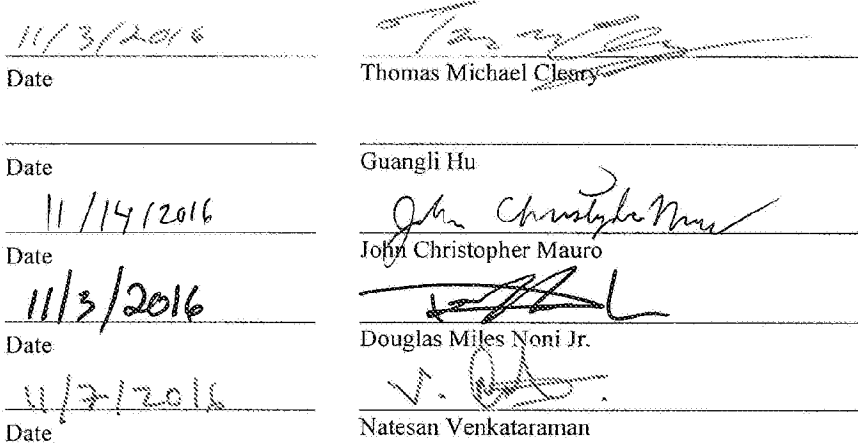 11/3/2016
Date Thomas Michael Cleary
Date Guangli Hu
11/14/2016 John Christopher Mauro
Date John Christopher Mauro
11/3/2016
Date Douglas Miles Noni Jr.
11/7/2016 V.
Date Natesan Venkataraman